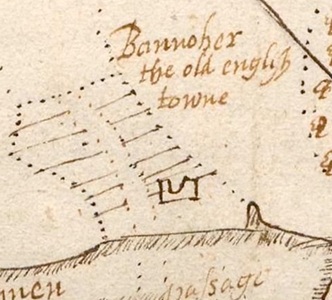 Bannoher
the old english
towne
passage